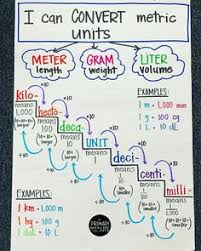 I can CONVERT metric
units
METER
length
GRAM
weight
LITER
Volume
kilo-
means
1,000
hecto-
means
100
deca-
means
10
UNIT
means
1
deci-
means
centi-
means
milli-
means
×10
×10
×10
×10
×10
×10
÷10
÷10
÷10
÷10
÷10
÷10
EXAMPLES:
1 m = 1,000 mm
1 g = 100 cg
1 L = 10 dL
EXAMPLES:
1 km = 1,000 m
1 hg = 100 g